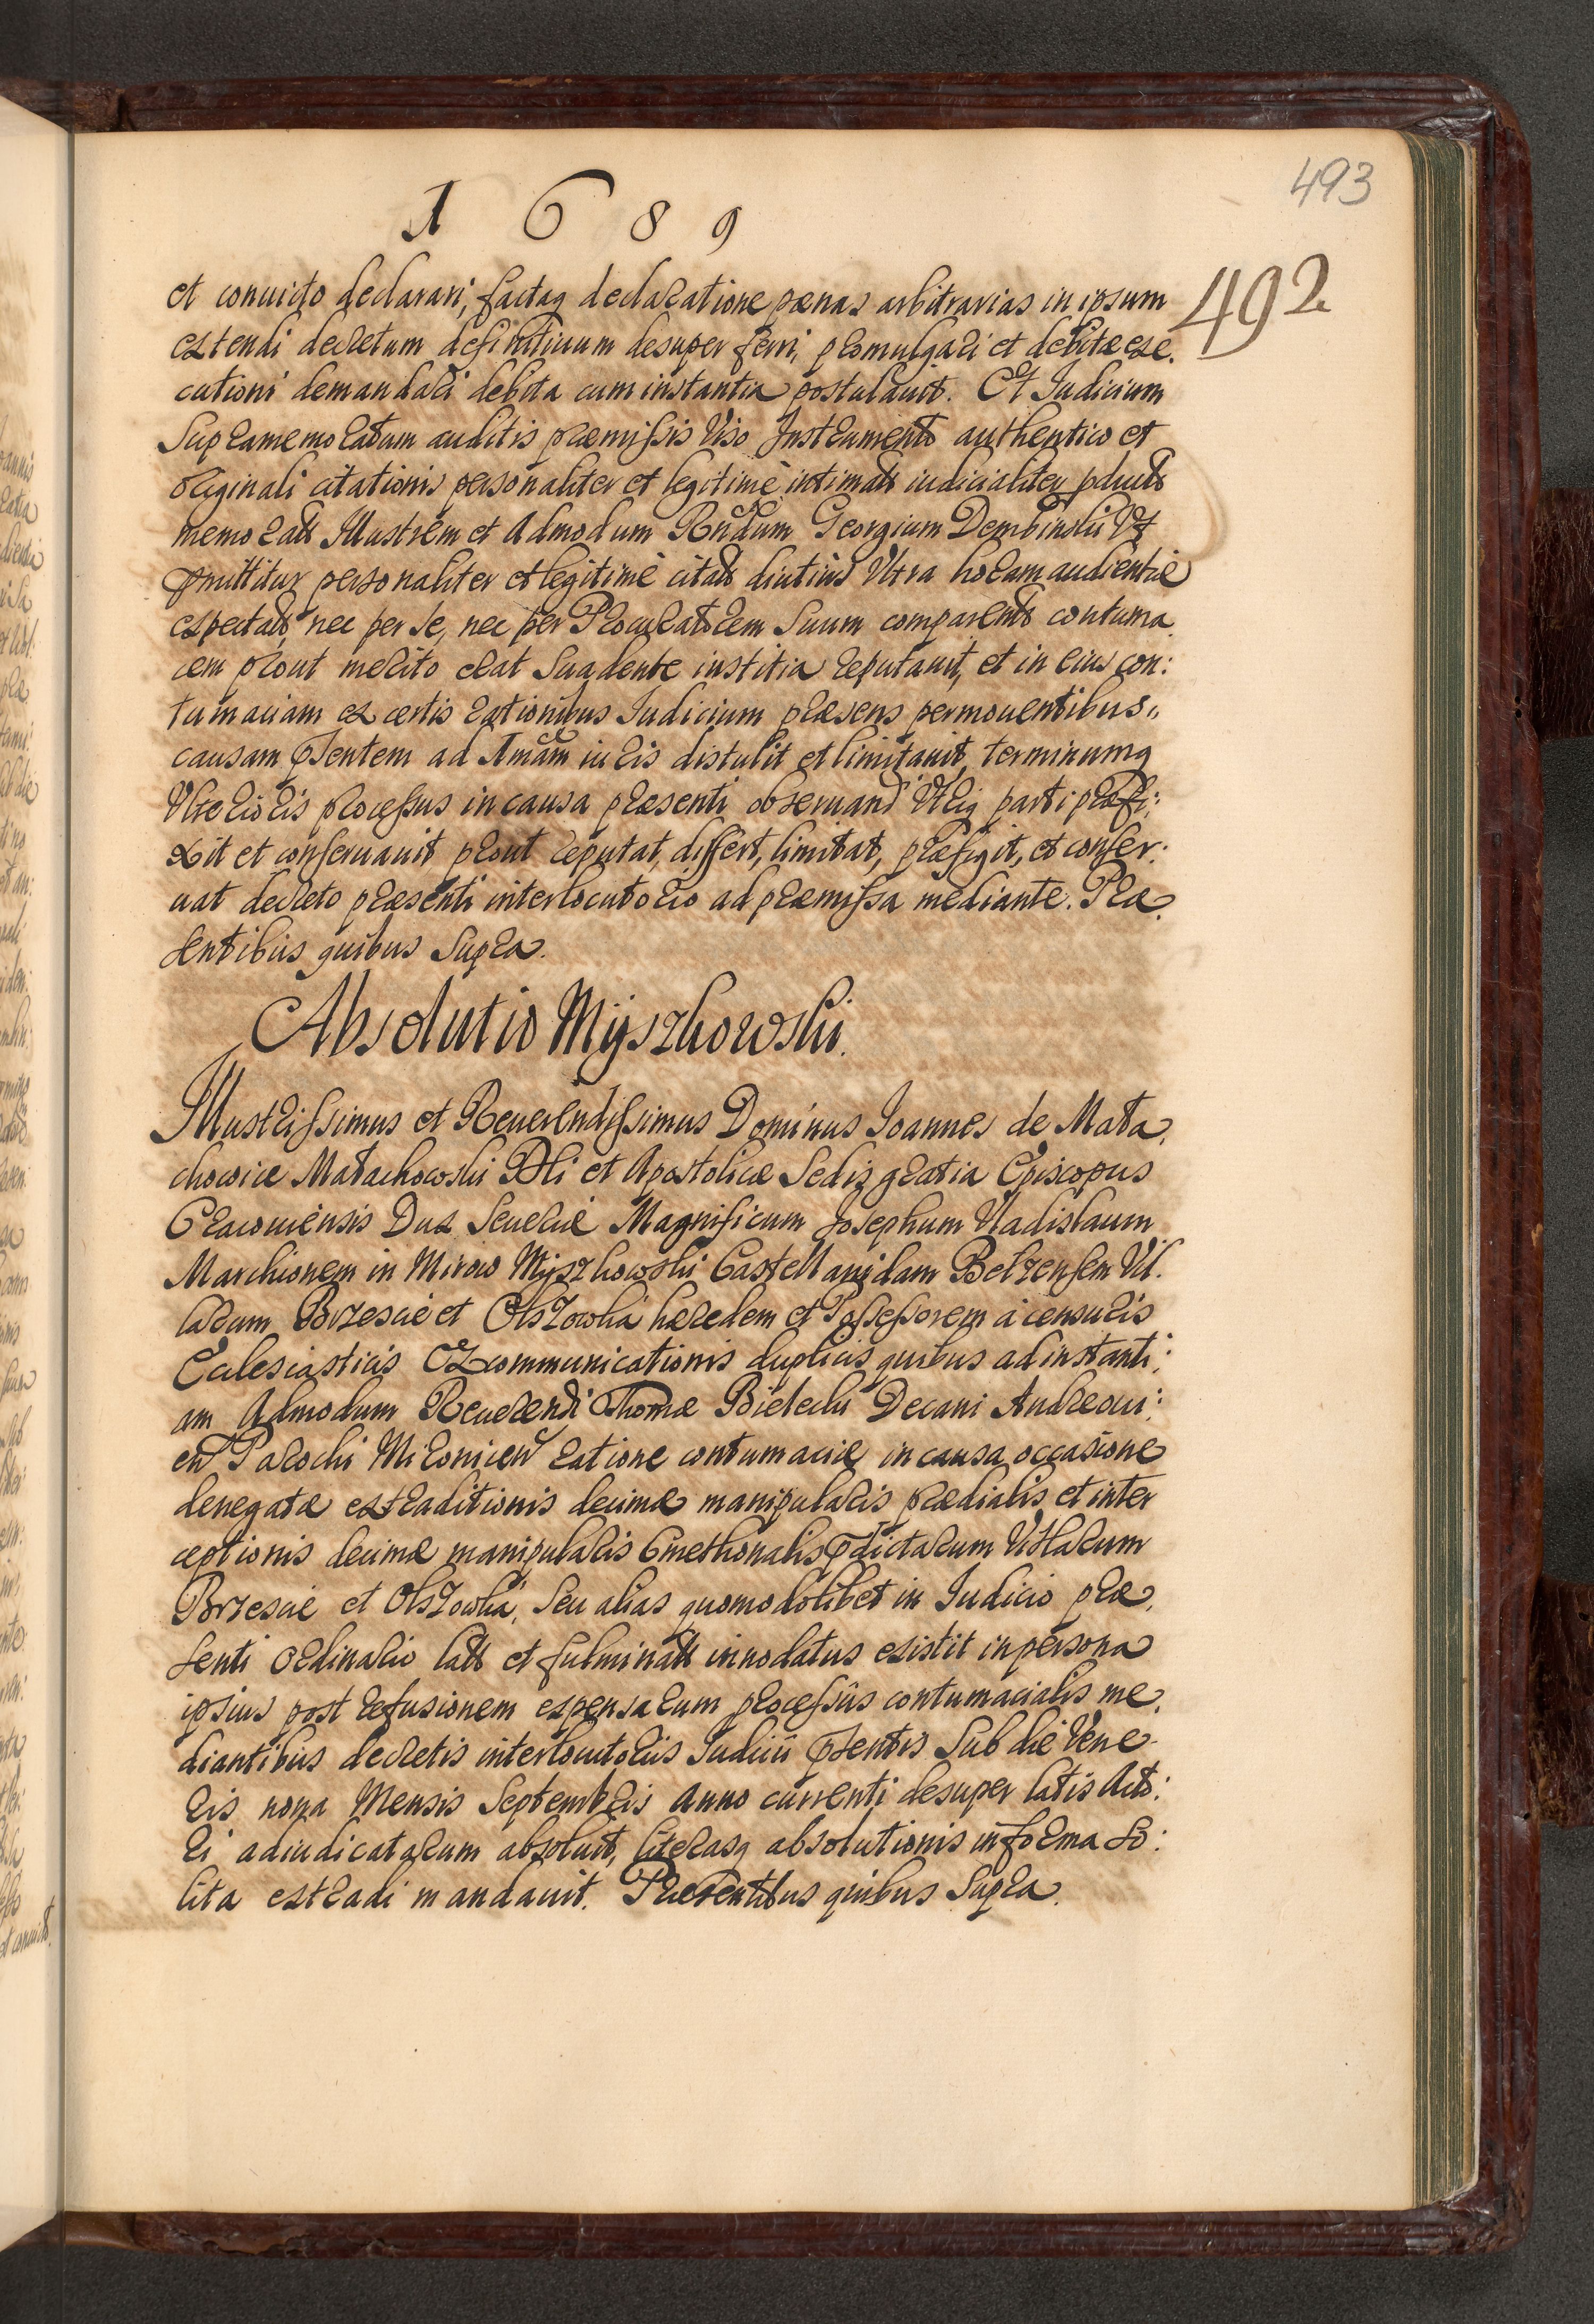 493
1689
492
et conuicto declarari, factaq declaratione pœnas arbitrarias in ipsum
extendi decretum definitiuum desuper ferri, promulgari et debitæ exe.
cutioni demandari debita cum instantia postulauit. Et Iudicium
Supramemoratum auditis præmissis Viso Instrumento authentico et
originali citationis personaliter et legitimè intimatæ iudicialiter
memorat Illustrem et Admodum Rndum Georgium Dembinski Vt
pmittitur personaliter et legitimè citat diutius Vltra horam audientiæ
expectat nec per se, nec per Procuratorem Suum comparent contuma
cem prout merito erat Suadente iustitia reputauit, et in eius con:
tumaciam ex certis rationibus Iudicium præsens permouentibus,,
causam psentem ad Amam iuris distulit et limitauit, terminumq
Vlterioris processus in causa præsenti obseruand Vtriq parti præfi:
xit et conseruauit prout reputat, differt, limitat, præfigit, et conser:
uat decreto præsenti interlocutorio ad præmissa mediante. Præ.
sentibus quibus Supra.
Absolutio Myszkowski.
Illustrissimus et Reuerendissimus Dominus Ioannes de Mała,
chowice Małachowski Dei et Apostolicæ Sedis gratia Episcopus
Cracouiensis Dux Seueriæ Magnificum Josephum Vladislaum
Marchionem in Mirow Myszkowski Castellanidam Belzensem Vil.
larum Brzescie et Olszowka hæredem et Possessorem à censuris
Ecclesiasticis Excommunicationis duplicis quibus ad instanti:
am Admodum Reuerendi Thomæ Bielecki Decani Andreoui:
en Parochi Mironicen ratione contumaciæ in causa occasione
denegatæ extraditionis decimæ manipularis prædialis et inter
ceptionis decimæ manipularis Cmethonalis pdictarum Villarum
Brzescie et Olszowka, Seu alias quomodolibet in Iudicio præ,
senti Ordinario latt et fulminatt innodatus existit in persona
ipsius post refusionem expensarum processûs contumacialis me,
diantibus decretis interlocutoriis Iudicii psentis Sub die Vene
ris nona Mensis Septembris Anno currenti desuper latis Acto:
ri adiudicatarum absoluit, literasq absolutionis in forma So:
lita extradi mandauit. Præsentibus quibus Supra.